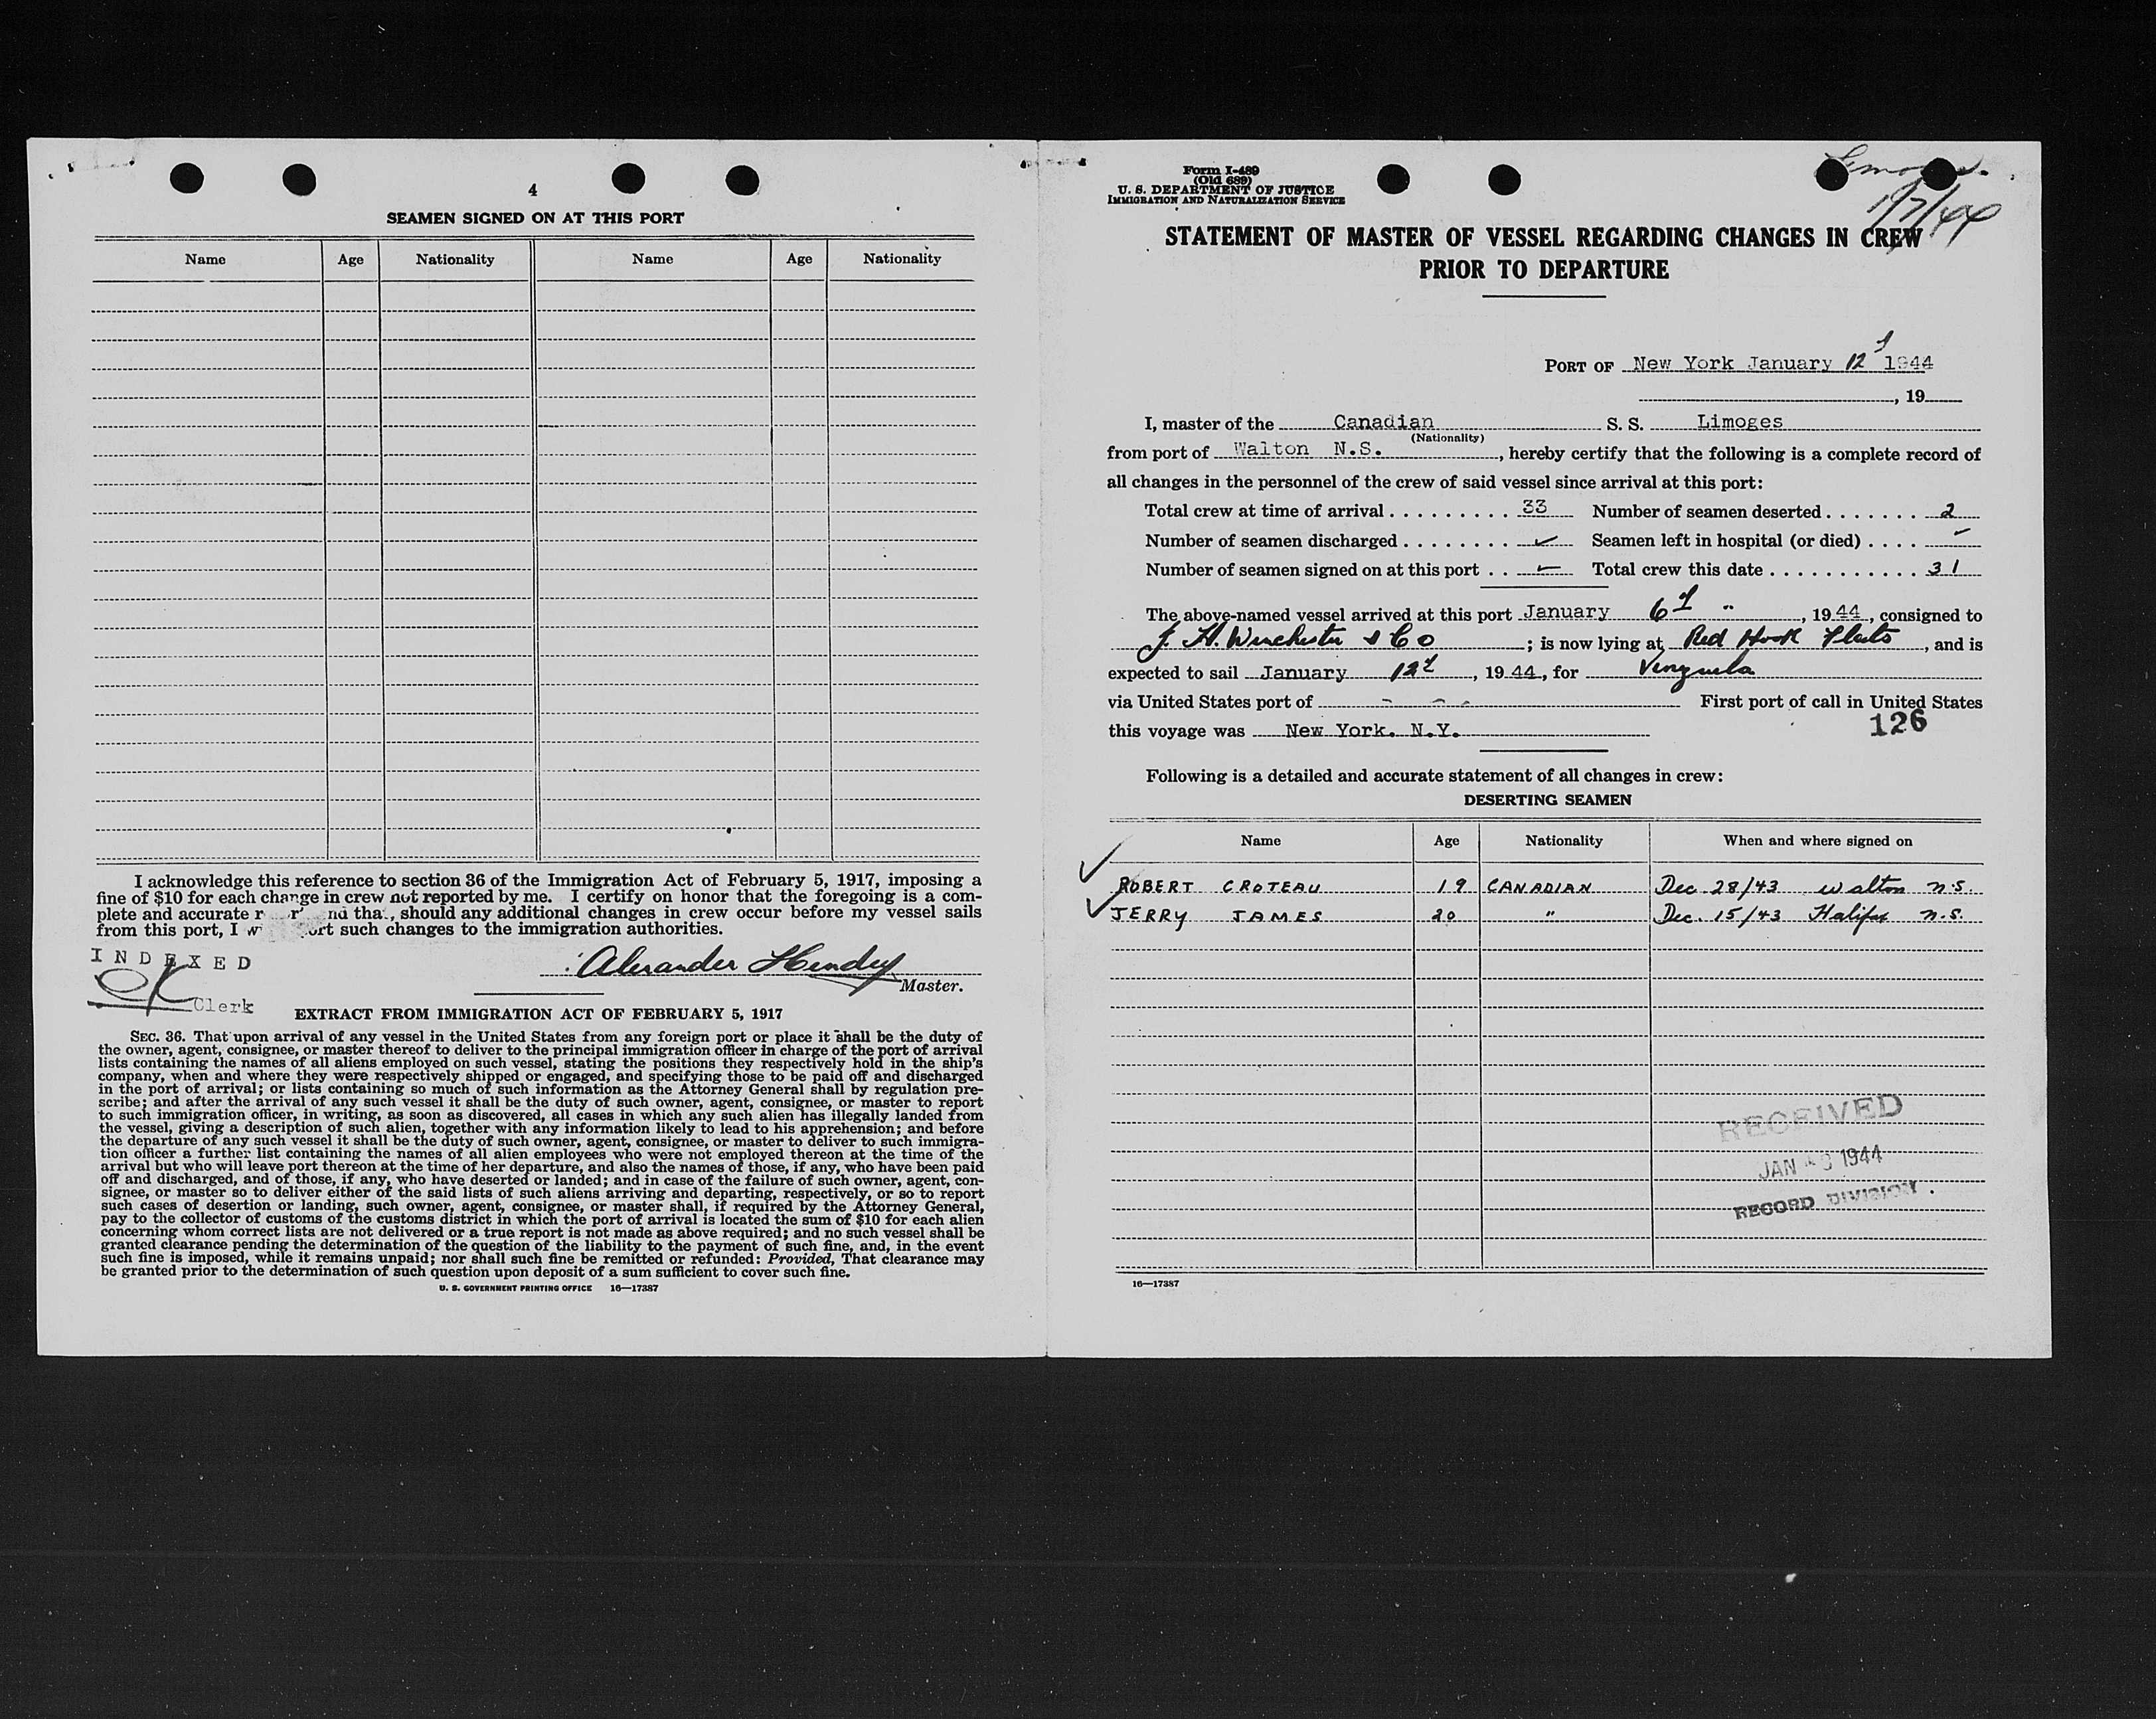 4
SEAMEN SIGNED ON AT THIS PORT
Name Age Nationality Name Age Nationality
I acknowledge this reference to section 36 of the Immigration Act of February 5, 1917, imposing a
fine of $10 for each change in crew not reported by me. I certify on honor that the foregoing is a com-
plete and accurate r nd that, should any additional changes in crew occur before my vessel sails
from this port, I w ort such changes to the immigration authorities.
INDEXED
Alexander Hendry
Master.
Clerk
EXTRACT FROM IMMIGRATION ACT OF FEBRUARY 5, 1917
SEC. 36. That upon arrival of any vessel in the United States from any foreign port or place it shall be the duty of
the owner, agent, consignee, or master thereof to deliver to the principal immigration officer in charge of the port of arrival
lists containing the names of all aliens employed on such vessel, stating the positions they respectively hold in the ship's
company, when and where they were respectively shipped or engaged, and specifying those to be paid off and discharged
in the port of arrival; or lists containing so much of such information as the Attorney General shall by regulation pre-
scribe; and after the arrival of any such vessel it shall be the duty of such owner, agent, consignee, or master to report
to such immigration officer, in writing, as soon as discovered, all cases in which any such alien has illegally landed from
the vessel, giving a description of such alien, together with any information likely to lead to his apprehension; and before
the departure of any such vessel it shall be the duty of such owner, agent, consignee, or master to deliver to such immigra-
tion officer a further list containing the names of all alien employees who were not employed thereon at the time of the
arrival but who will leave port thereon at the time of her departure, and also the names of those, if any, who have been paid
off and discharged, and of those, if any, who have deserted or landed; and in case of the failure of such owner, agent, con-
signee, or master so to deliver either of the said lists of such aliens arriving and departing, respectively, or so to report
such cases of desertion or landing, such owner, agent, consignee, or master shall, if required by the Attorney General,
pay to the collector of customs of the customs district in which the port of arrival is located the sum of $10 for each alien
concerning whom correct lists are not delivered or a true report is not made as above required; and no such vessel shall be
granted clearance pending the determination of the question of the liability to the payment of such fine, and, in the event
such fine is imposed, while it remains unpaid; nor shall such fine be remitted or refunded: Provided, That clearance may
be granted prior to the determination of such question upon deposit of a sum sufficient to cover such fine.
U. S. GOVERNMENT PRINTING OFFICE 16—17387
Form I-489
(Old 689)
U. S. DEPARTMENT OF JUSTICE
IMMIGRATION AND NATURALIZATION SERVICE
1/7/44
STATEMENT OF MASTER OF VESSEL REGARDING CHANGES IN CREW
PRIOR TO DEPARTURE
PORT OF New York January 12 1944
, 19
I, master of the Canadian S. S. Limoges
(Nationality)
from port of Walton N.S. , hereby certify that the following is a complete record of
all changes in the personnel of the crew of said vessel since arrival at this port:
Total crew at time of arrival . . . . . . . . . 33 Number of seamen deserted . . . . . . . 2
Number of seamen discharged . . . . . . . . ✓ Seamen left in hospital (or died) . . . . –
Number of seamen signed on at this port . . ✓ Total crew this date . . . . . . . . . . . 31
The above-named vessel arrived at this port January 6 " , 19 44 , consigned to
J. H. Winchester & Co ; is now lying at Red Hook Flats , and is
expected to sail January 12 , 19 44 , for Venzuela
via United States port of - - - First port of call in United States
this voyage was New York. N.Y.
126
Following is a detailed and accurate statement of all changes in crew:
DESERTING SEAMEN
Name Age Nationality When and where signed on
✓ ROBERT CROTEAU 19 CANADIAN Dec 28/43 Walton N.S.
✓ JERRY JAMES 20 " Dec. 15/43 Halifax N.S.
RECEIVED
JAN 3 1944
RECORD DIVISION
16—17387